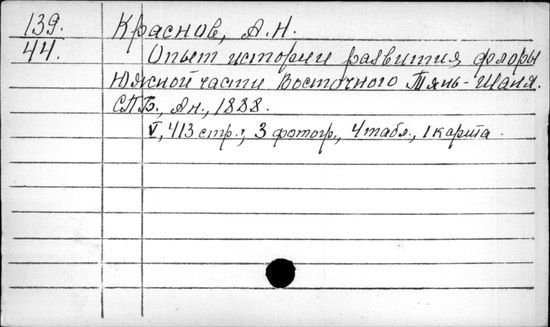 139. Краснов, А.Н.
44. Опыт истории развития флоры
южной части Восточного Тянь-Шаня.
СПБ., Ан., 1888.
V, 413 стр., 3 фотогр., 4 табл., 1 карта.